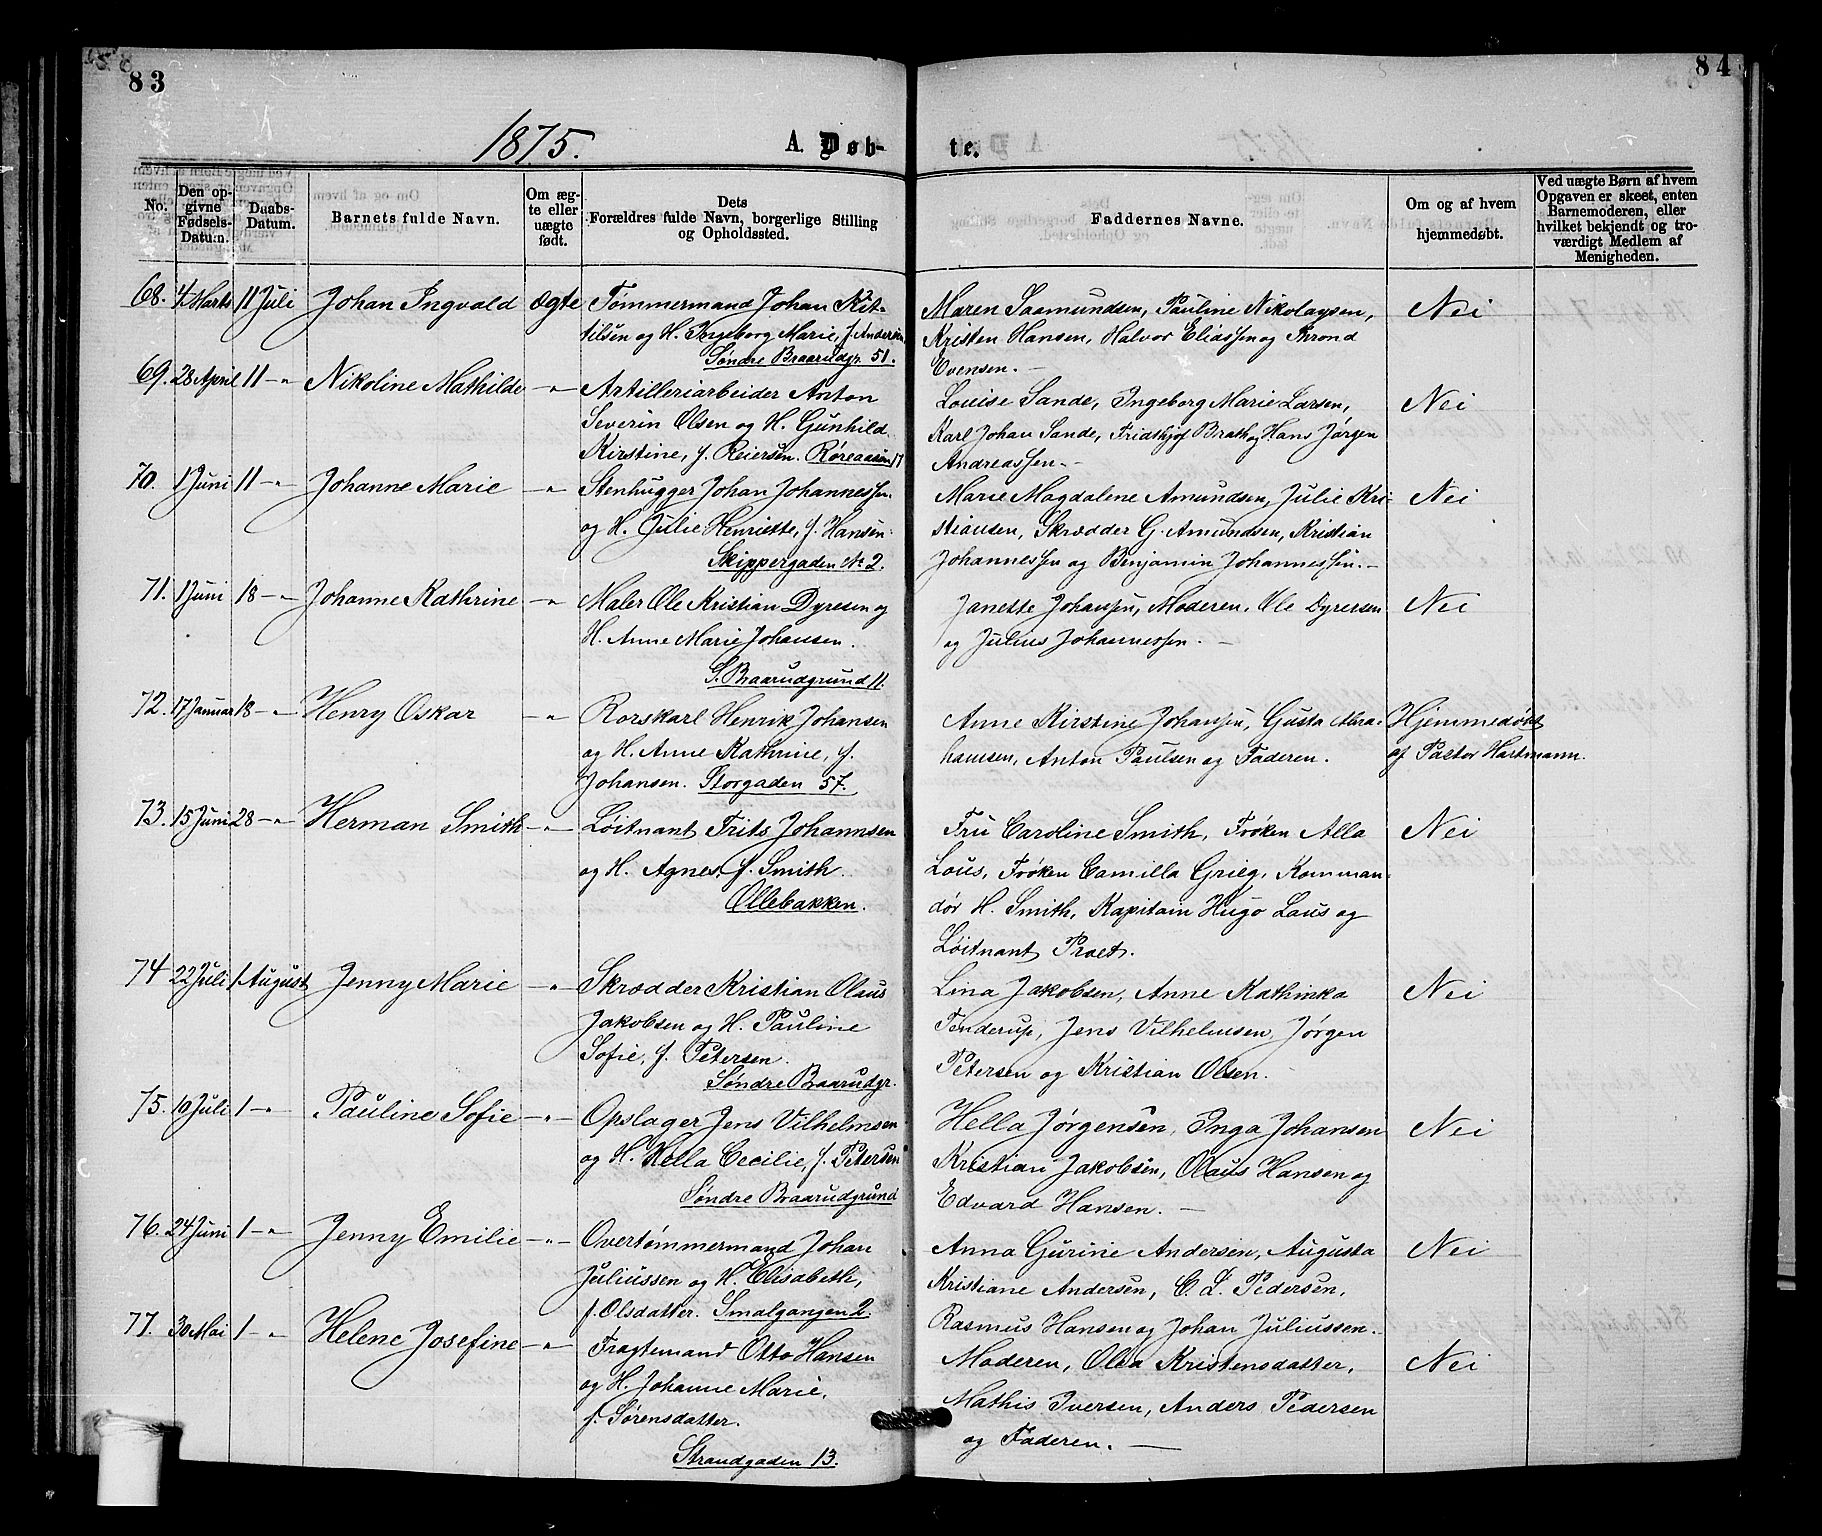 83
84
1875.
A. Døb-
te.
No.
Den op-
givne
Fødsels-
Datum.
Daabs-
Datum.
Barnets fulde Navn.
Om æg-
te eller
uægte
født.
Dets
Forældres fulde Navn, borgerlige Stilling
og Opholdssted.
Faddernes Navne.
Om og af hvem
hjemmedøbt.
Ved uægte Børn af hvem
Opgaven er skeet, enten
Barnemoderen, eller
hvilket bekjendt og tro-
værdigt Medlem af
Menigheden.
68. 4 Marts 11 Juli Johan Ingvald ægte Tømmermand Johan Kit-
tilsen og H. Ingeborg Marie, f. Andersen
Søndre Braarudgr. 51.
Maren Saamundsen, Pauline Nikolaysen,
Kristen Hansen, Halvor Eliassen og Thrond
Evensen. —
Nei
69. 28 April 11 -"- Nikoline Mathilde -"- Artilleriarbeider Anton
Severin Olsen og H. Gunhild
Kirstine, f. Reiersen. Røreaasen 17
Louise Sande, Ingeborg Marie Larsen,
Karl Johan Sande, Fridthjof Brath og Hans Jørgen
Andreassen. —
Nei
70. 1 Juni 11 -"- Johanne Marie -"- Stenhugger Johan Johannessen
og H. Julie Henriette, f. Hansen
Skippergaden No 2.
Marie Magdalene Amundsen, Julie Kri-
stiansen, Skrædder G. Amundsen, Kristian
Johannessen og Benjamin Johannessen. —
Nei
71. 1 Juni 18 -"- Johanne Kathrine -"- Maler Ole Kristian Dyresen og
H. Anne Marie Johansen.
S. Braarudgrund 11.
Janette Johansen, Moderen, Ole Dyresen
og Julius Johannessen. —
Nei
72. 17 Januar 18 -"- Henry Oskar -"- Rorskarl Henrik Johansen
og H. Anne Kathrine, f.
Johansen. Storgaden 57.
Anne Kirstine Johansen, Gusta Abra-
hamsen, Anton Paulsen og Faderen.
Hjemmedøbt
af Pastor Hartmann.
73. 15 Juni 28 -"- Herman Smith -"- Løitnant Frits Johannsen
og H. Agnes, f. Smith.
Ollebakken.
Fru Caroline Smith, Frøken Alla
Lous, Frøken Camilla Grieg, Komman-
dør H. Smith, Kapitain Hugo Laus og
Løitnant Proet.
Nei
74 22 Juli 1 August Jenny Marie -"- Skrædder Kristian Olaus
Jakobsen og H. Pauline
Sofie, f. Petersen.
Søndre Braarudgr.
Lina Jakobsen, Anne Kathinka
Tenderup, Jens Vilhelmsen, Jørgen
Petersen og Kristian Olsen. —
Nei
75. 10 Juli 1 -"- Pauline Sofie -"- Opslager Jens Vilhelmsen
og H. Hella Cecilie, f. Petersen
Søndre Braarudgrund
Hella Jørgensen, Inga Johansen
Kristian Jakobsen, Olaus Hansen og
Edvard Hansen. —
Nei
76. 24 Juni 1 -"- Jenny Emilie -"- Overtømmermand Johan
Juliussen og H. Elisabeth,
f. Olsdatter. Smalgangen 2.
Anna Gurine Andersen, Augusta
Kristiane Andersen, C. L. Pedersen,
Rasmus Hansen og Johan Juliussen.
Nei
77. 30 Mai 1 -"- Helene Josefine -"- Fragtemand Otto Hansen
og H. Johanne Marie,
f. Sørensdatter.
Strandgaden 13.
Moderen, Olea Kristensdatter,
Mathis Iversen, Anders Pedersen
og Faderen. —
Nei